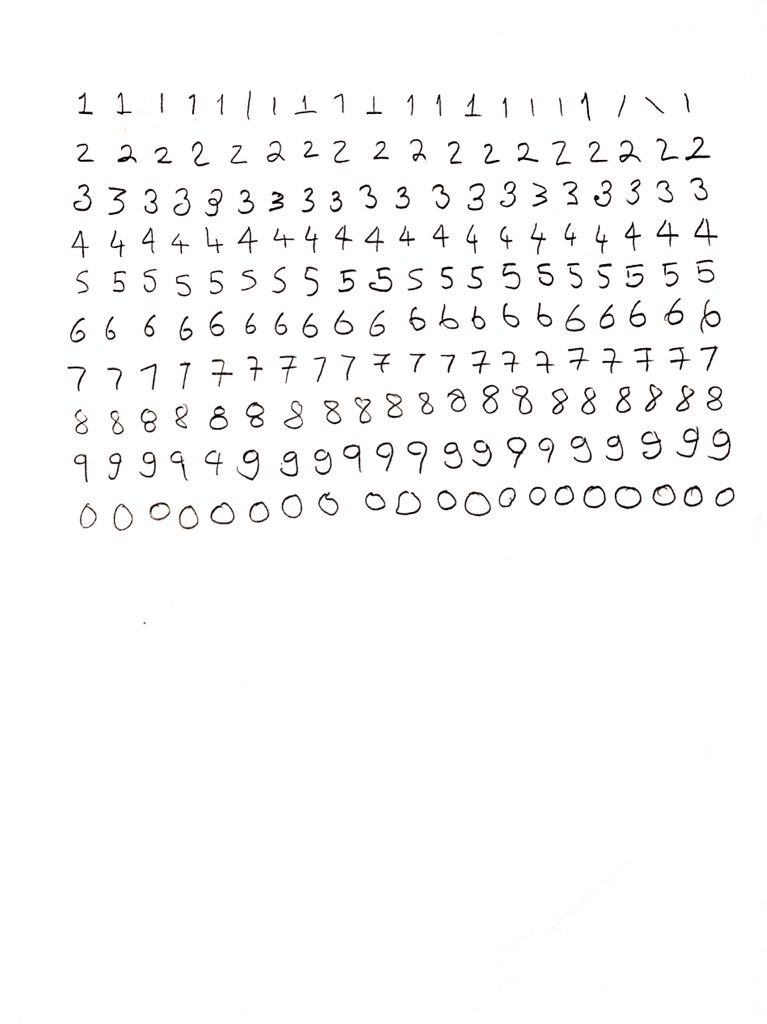 1 1 1 1 1 1 1 1 1 1 1 1 1 1 1 1 1 1 1 1
2 2 2 2 2 2 2 2 2 2 2 2 2 2 2 2 2 2
3 3 3 3 3 3 3 3 3 3 3 3 3 3 3 3 3 3 3 3
4 4 4 4 4 4 4 4 4 4 4 4 4 4 4 4 4 4 4 4
5 5 5 5 5 5 5 5 5 5 5 5 5 5 5 5 5 5 5 5
6 6 6 6 6 6 6 6 6 6 6 6 6 6 6 6 6 6 6 6
7 7 7 7 7 7 7 7 7 7 7 7 7 7 7 7 7 7 7 7
8 8 8 8 8 8 8 8 8 8 8 8 8 8 8 8 8 8 8 8
9 9 9 9 9 9 9 9 9 9 9 9 9 9 9 9 9 9 9 9
0 0 0 0 0 0 0 0 0 0 0 0 0 0 0 0 0 0 0 0